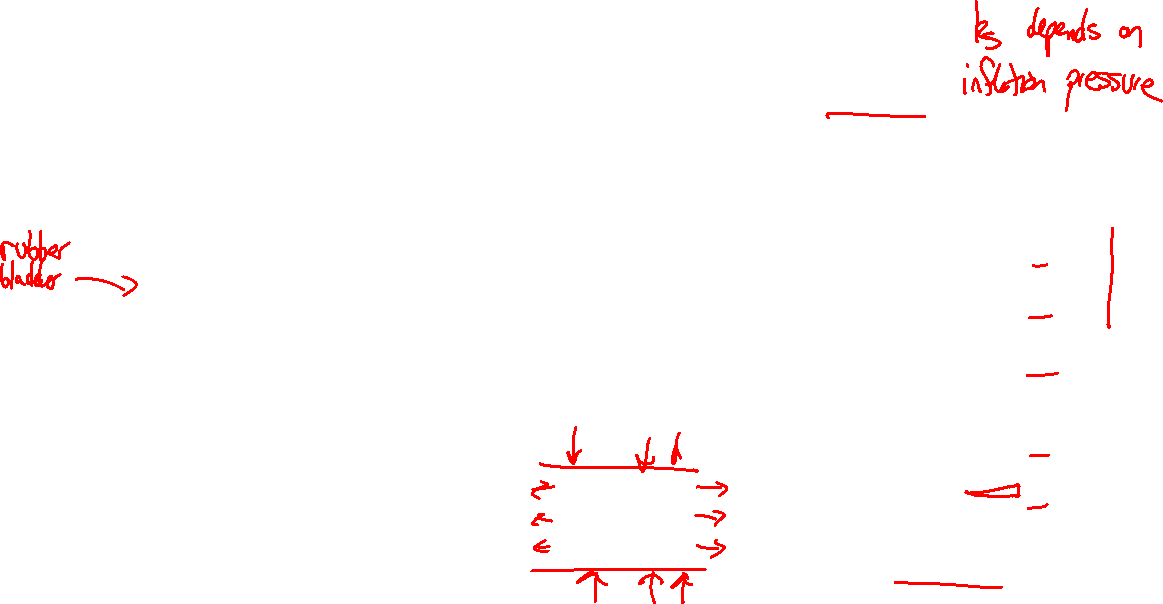 ks depends on
inflation pressure
rubber
bladder